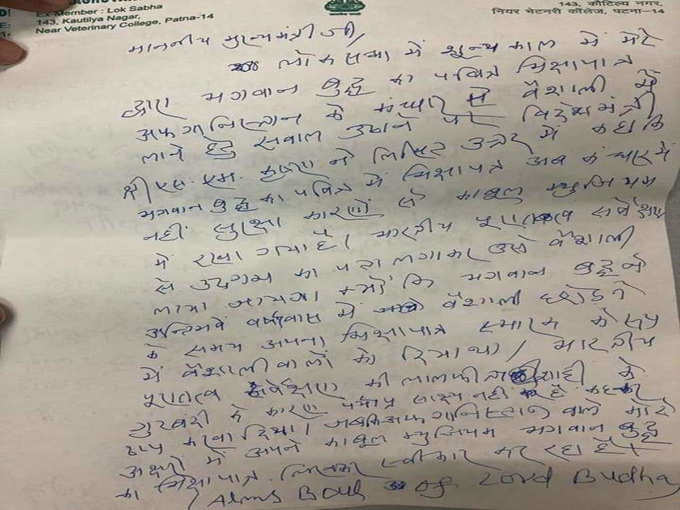 Ex Member : Lok Sabha
143, Kautilya Nagar,
Near Veterinary College, Patna-14
143, कौटिल्य नगर,
नियर वेटनरी कॉलेज, पटना-14
माननीय मुख्यमंत्री जी,
लोकसभा में शून्य काल में मेरे
द्वारा भगवान बुद्ध का पवित्र भिक्षापात्र
अफगानिस्तान के कंधार से वैशाली में
लाने हेतु सवाल उठाने पर विदेश मंत्री
श्री एस. एम. कृष्णा ने लिखित उत्तर में कहा कि
भगवान बुद्ध का पवित्र भिक्षापात्र अब कंधार में
नहीं सुरक्षा कारणों से काबुल म्युजियम
में रखा गया है। भारतीय पुरातत्व सर्वेक्षण
से उदगम का पता लगाकर उसे वैशाली
लाया जायगा क्योंकि भगवान बुद्ध ने
अन्तिम वर्षावास में वैशाली छोड़ने
के समय अपना भिक्षापात्र स्मारक के रूप
में वैशाली वालों को दिया था। भारतीय
पुरातत्व सर्वेक्षण की लालफीताशाही के
के कारण साक्ष्य नहीं है कहकर
करवा दिया। अफगानिस्तान वाले मोटे
अक्षरों में अपने काबुल म्युजियम भगवान बुद्ध
का भिक्षापात्र लिखकर स्वीकार कर रहा है।
(Alms Bowl of Lord Budha)